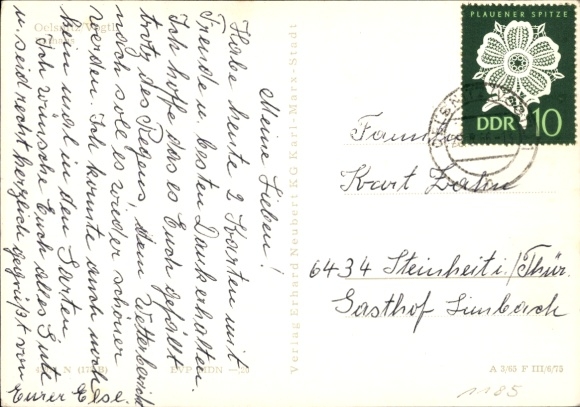 Oelsn. i. Vogtl.
Meine Lieben!
Habe heute 2 Karten mit
Freude u. besten Dank erhalten.
Ich hoffe das es Euch gefällt
trotz des Regens, dem Wetterbericht
nach soll es wieder schöner
werden. Ich konnte auch noch
kein mal in den Garten.
Ich wünsche Euch alles Gute
u. seid recht herzlich gegrüßt von
Eurer Else.
Verlag Erhard Neubert KG Karl-Marx-Stadt
PLAUENER SPITZE
DDR 10
Familie
Kurt Zahn
6434 Steinheit i./Thür.
Gasthof Limbach
EVP MDN
A 3/65 F III/6/75
1185